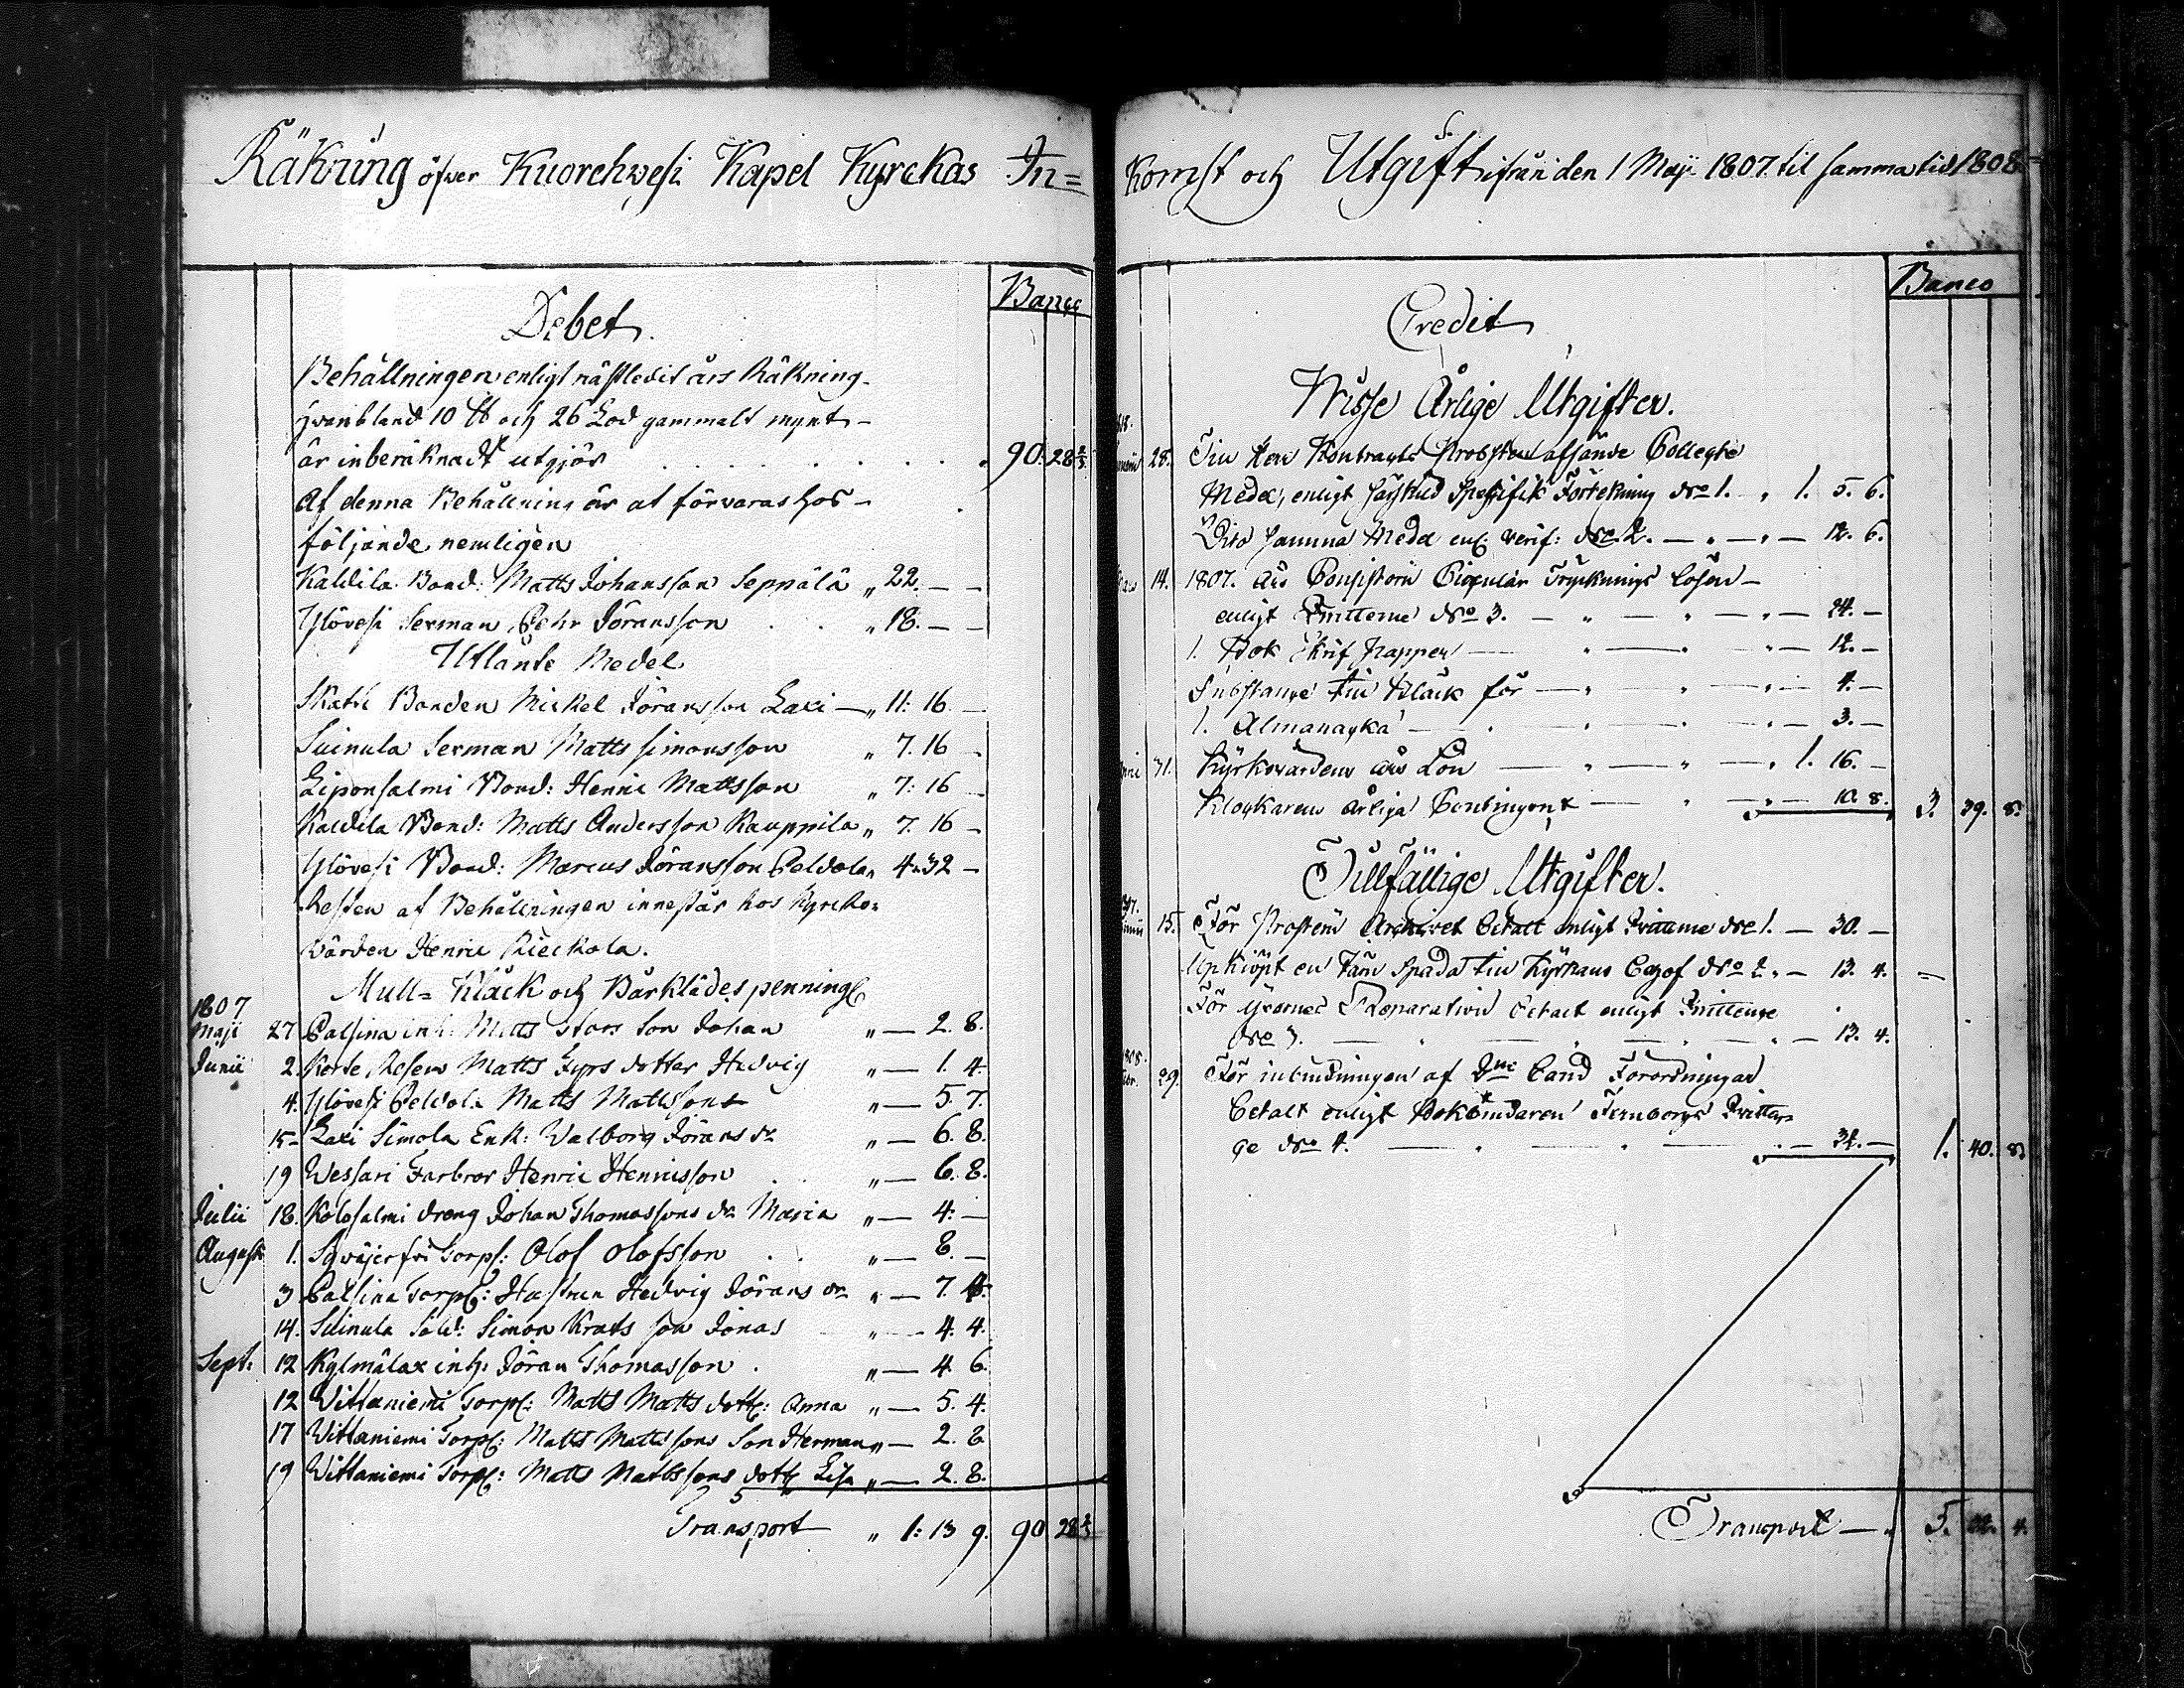 Räkning öfver Kuorehwesi Kapel Kyrckas In=
Debet.
Banco
Behållningen enligt nästledit års Räkning
hvaribland 10 ℔ och 26 Lod gammalt mynt
är inberäknadt utgjör . . . . . . . . 90. 28 2/3
Af denna Behållning är at förvaras hos
följande nemligen
Kaldila Bond: Matts Johansson Seppälä „ 22. — —
Ylövesi Sexman Pehr Jöransson . . „ 18. — —
Utlånte Medel
Skatte Bonden Mickel Jöransson Laxi — „ 11: 16 —
Suinula Sexman Matts Simonsson „ 7. 16 —
Leponsalmi Bond: Henric Mattsson „ 7: 16 —
Kaldila Bond: Matts Andersson Kauppila „ 7. 16 —
Ylövesi Bond: Marcus Jöransson Peldola „ 4. 32 —
Resten af Behållningen innestår hos Kyrcko=
värden Henric Rieckola.
Mull= Kläck och Bårklädespenning
1807
Maji 27 Palsina inh: Matts son Johan „ — 2. 8.
Junii 2. Matts dotter Hedvig „ — 1. 4.
4. Ylövesi Peldola Matts Mattsson „ — 5. 7.
15 Laxi Simola Enk: Walborg Jörans dr „ — 6. 8.
19 Wessari Farbror Henric Henricsson . . „ — 6. 8.
Julii 18. Kolosalmi dreng Johan Thomassons dr Maria „ — 4. —
August 1. Torp: Olof Olofsson . . „ — 8. —
3 Palsina Torp: Hustrun Hedvig Jörans dr „ — 7. 4.
14. Suinula Sold: Simon Krats son Jonas „ — 4. 4.
Sept: 12 Kylmälax inh: Jöran Thomasson . „ — 4. 6.
12 Wittaniemi Torp: Matts Matts dott: Anna „ — 5. 4.
17 Wittaniemi Torp: Matts Mattssons Son Herman „ — 2. 8
19 Wittaniemi Torp: Matts Mattssons dott Lisa „ — 2. 8.
Transport „ 1: 13 9. 90 28 2/3
komst och Utgift ifrån den 1 Maji 1807. til samma tid 1808
Banco
Credit
Wisse Årlige Utgifter.
28. Till Herr Kontrakts Prosten afsände Collegte
Medel, enligt särskild Spesifik Förtekning No 1. „ 1. 5. 6.
Dito samma Medel enl: Verif: No 2. — „ — „ — 12. 6.
14. 1807. års Consistorii Circulär Tryknings lösen —
enligt Quittence No 3. — „ — „ — „ — 24. —
1. Bok Skrif Papper — „ — „ — 12. —
Substance till Bläck för — „ — „ — 4. —
1. Almanacka — „ — „ — 3. —
31. Kyrkovärdens års Lön — „ — „ — „ 1. 16. —
Klockarens årliga Contingent — „ — „ — 10. 8. 3. 39. 8.
Tillfällige Utgifter.
15. För Prosteri Archivet betalt enligt Quittence No 1. — 30. —
Upkiöpt en Järn Spada till Kyrkans behof No 2. „ — 13. 4.
För Reparation betalt enligt Quittence
No 3. — „ — „ — „ — 13. 4.
29. För inbindningen af Band Förordningar
betalt enligt Bokbindaren Quittan=
ce No 4. — „ — „ — „ — 32. — 1. 40. 8
Transport — „ 5. 32. 4.